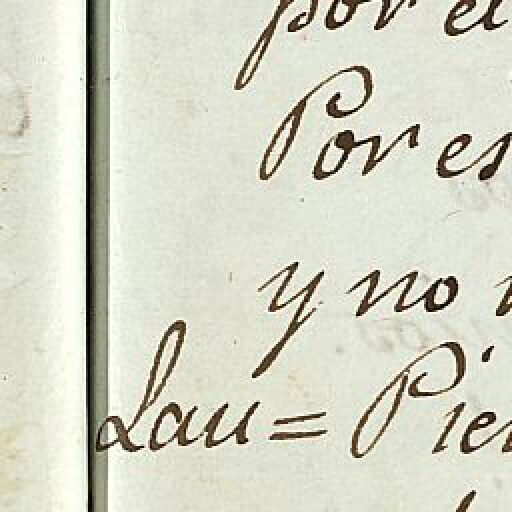 por el
Por es
y no
Lau = Pie